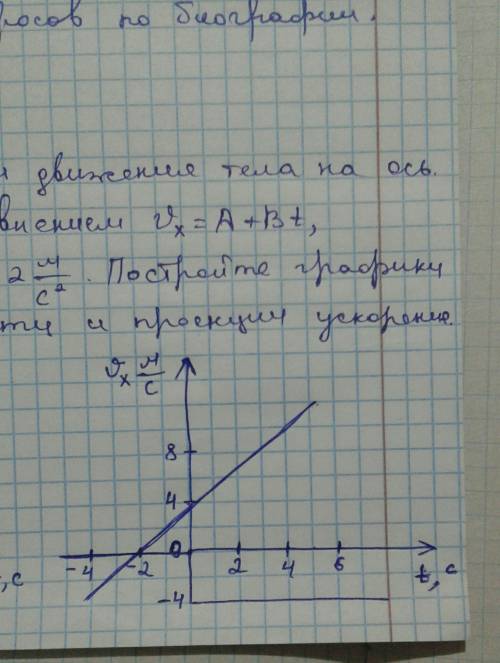 росов по биографии.
движения тела на ось.
внением υₓ = A + Bt,
2 м/с². Постройте графики
ти и проекции ускорения.
υₓ м/с
8
4
-4 -2 0 2 4 6
,с t, с
-4